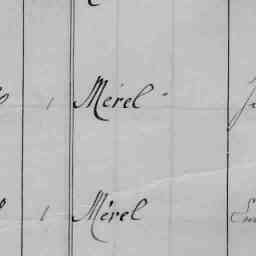 1 Mérel
1 Mérel